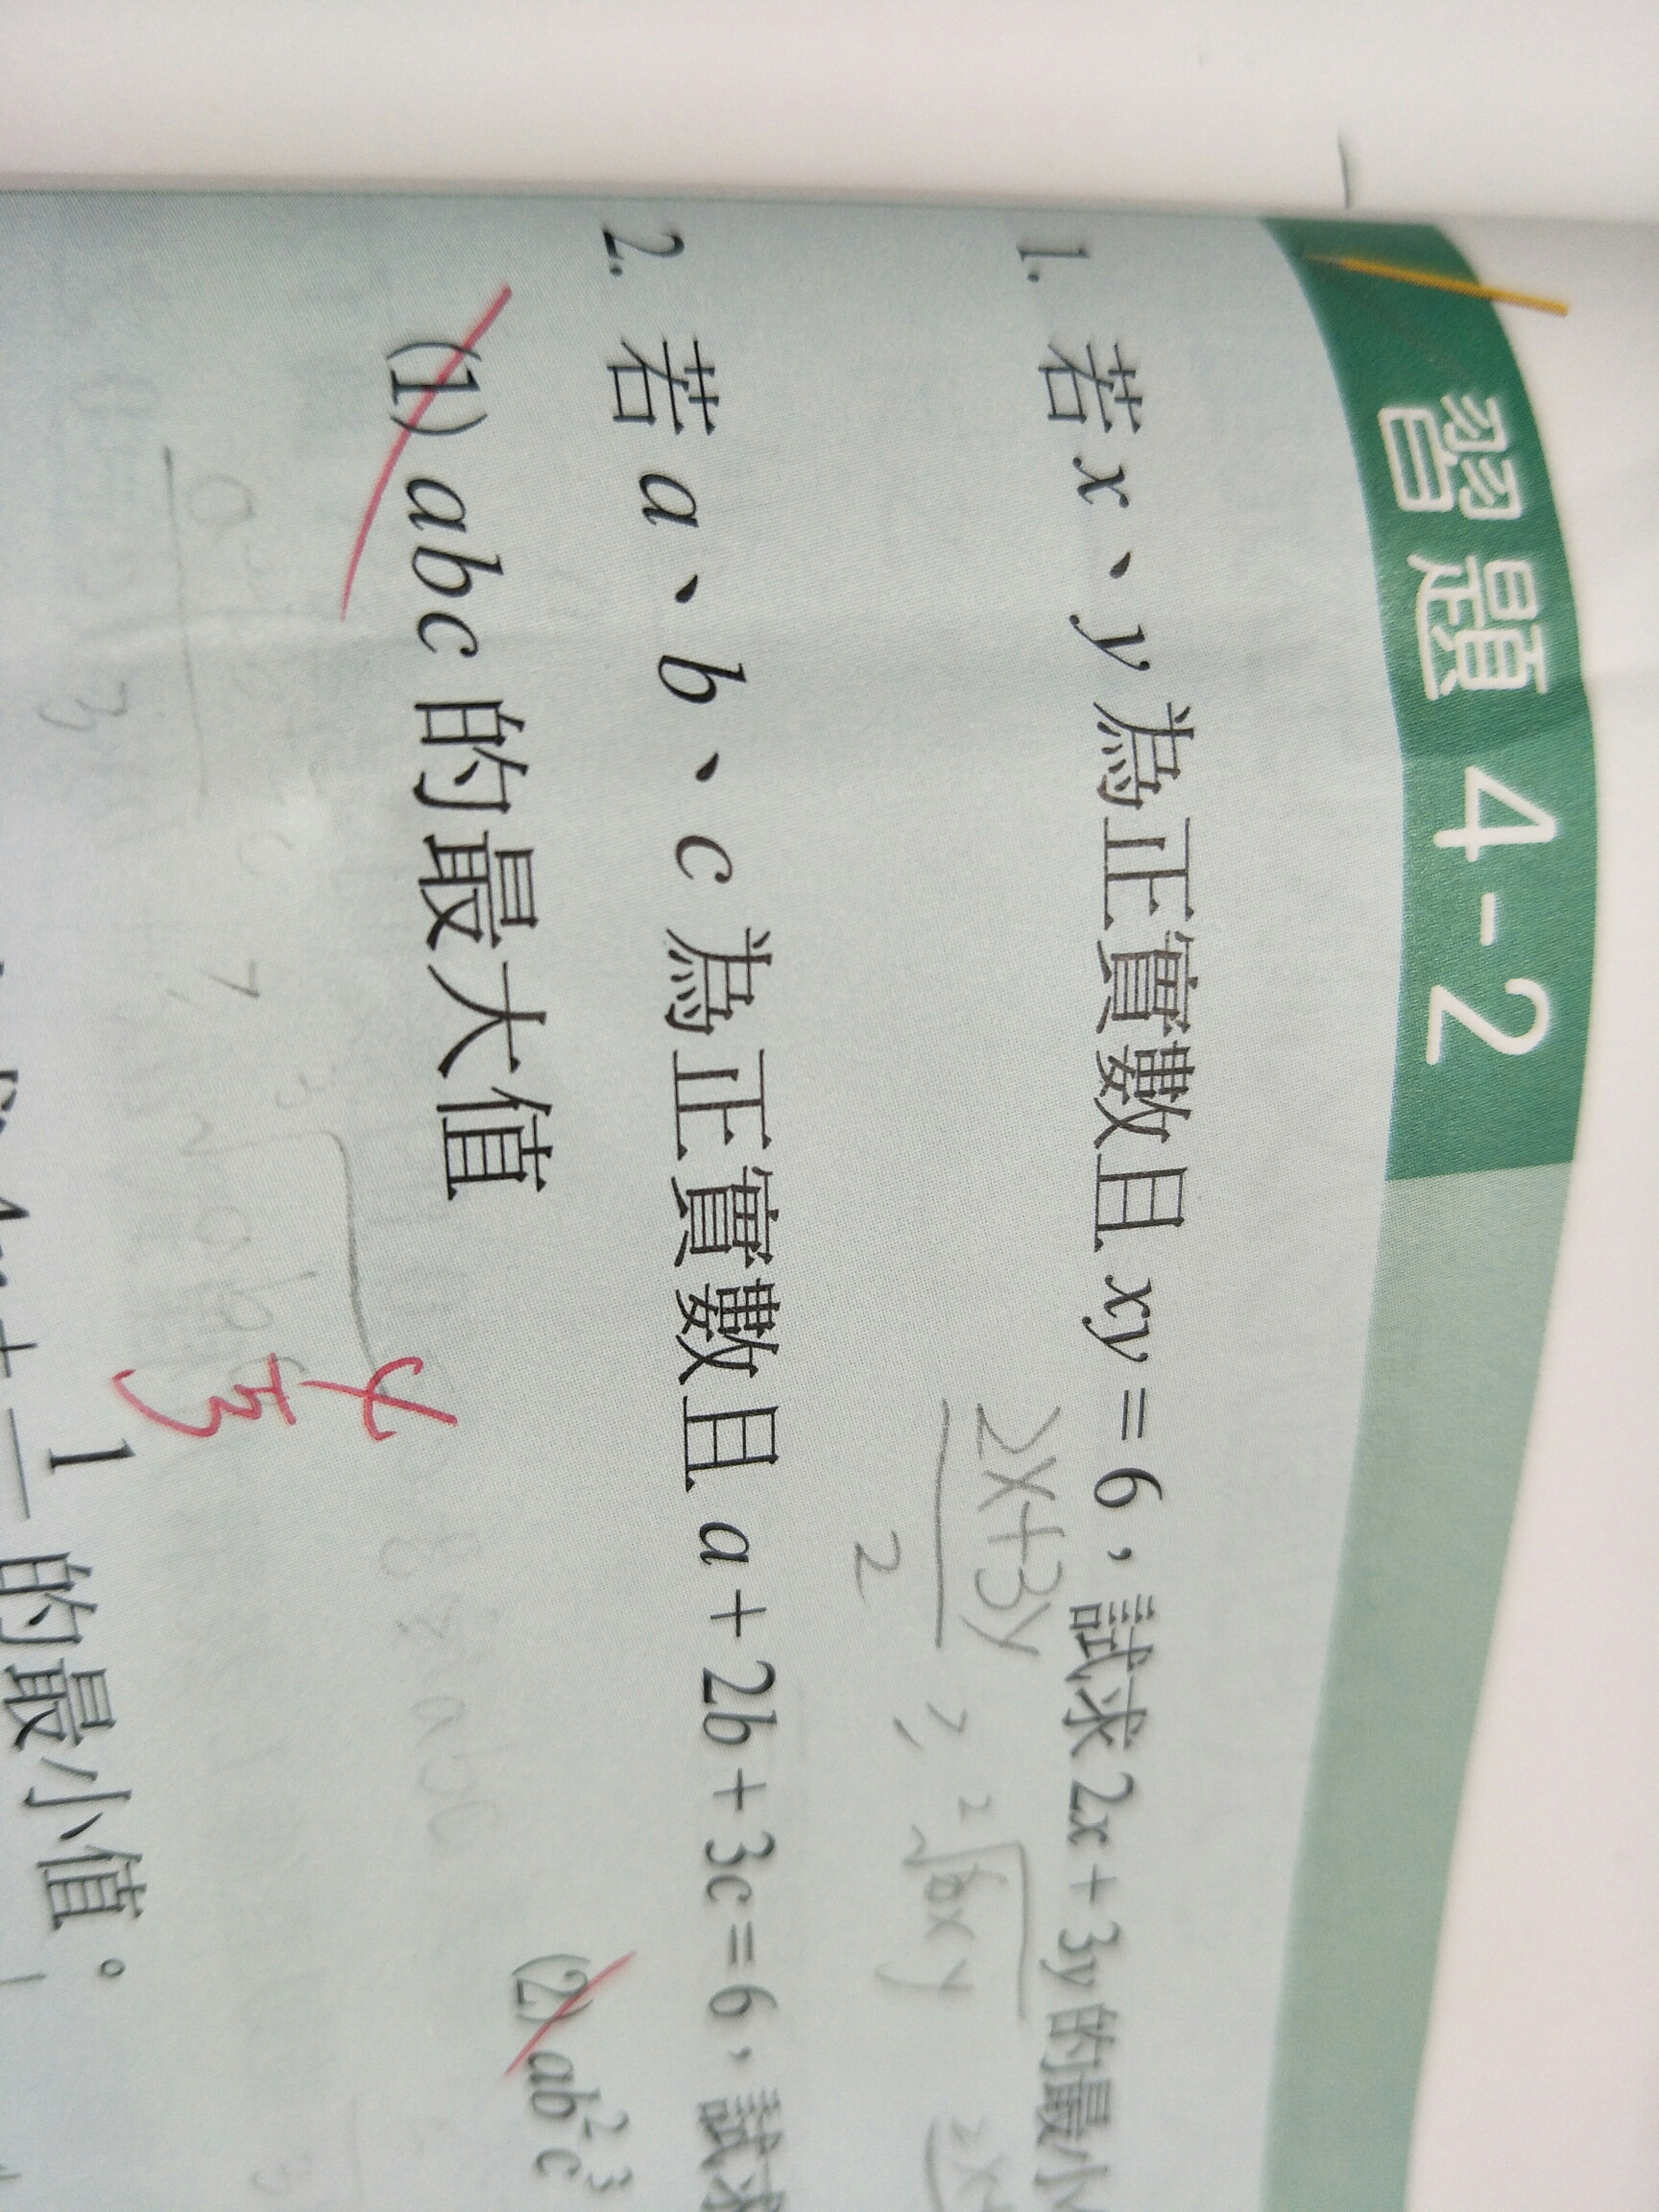 習題 4-2
1. 若 x、y 為正實數且 xy = 6，試求 2x + 3y 的最小
2x+3y / 2 ≥ ²√6xy
2. 若 a、b、c 為正實數且 a + 2b + 3c = 6，試求
(1) abc 的最大值
(2) ab²c³
4/3
1 的最小值。